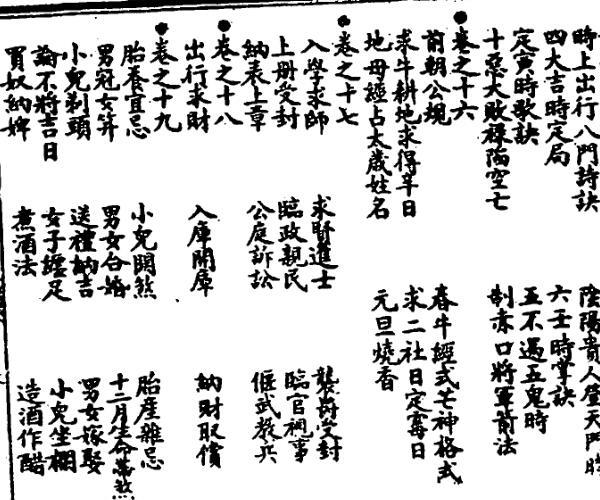 時上出行八門詩訣 陰陽貴人登天門時
四大吉時定局 六壬時掌訣
定寅時歌訣 五不遇五鬼時
十惡大敗祿陷空亡 制赤口將軍箭法
●卷之十六
前朝公規 春牛經式芒神格式
求牛耕地求得辛日 求二社日定霉日
地母經占太歲姓名 元旦燒香
●卷之十七
入學求師 求賢進士 襲爵受封
上册受封 臨政親民 臨官視事
納表上章 公庭訴訟 偃武教兵
●卷之十八
出行求財 入庫開庫 納財取償
●卷之十九
胎養宜忌 小兒關煞 胎產雜忌
男冠女笄 男女合婚 十二月生命帶煞
小兒剃頭 送禮納吉 男女嫁娶
論不將吉日 女子纏足 小兒坐欄
買奴納婢 煮酒法 造酒作醋